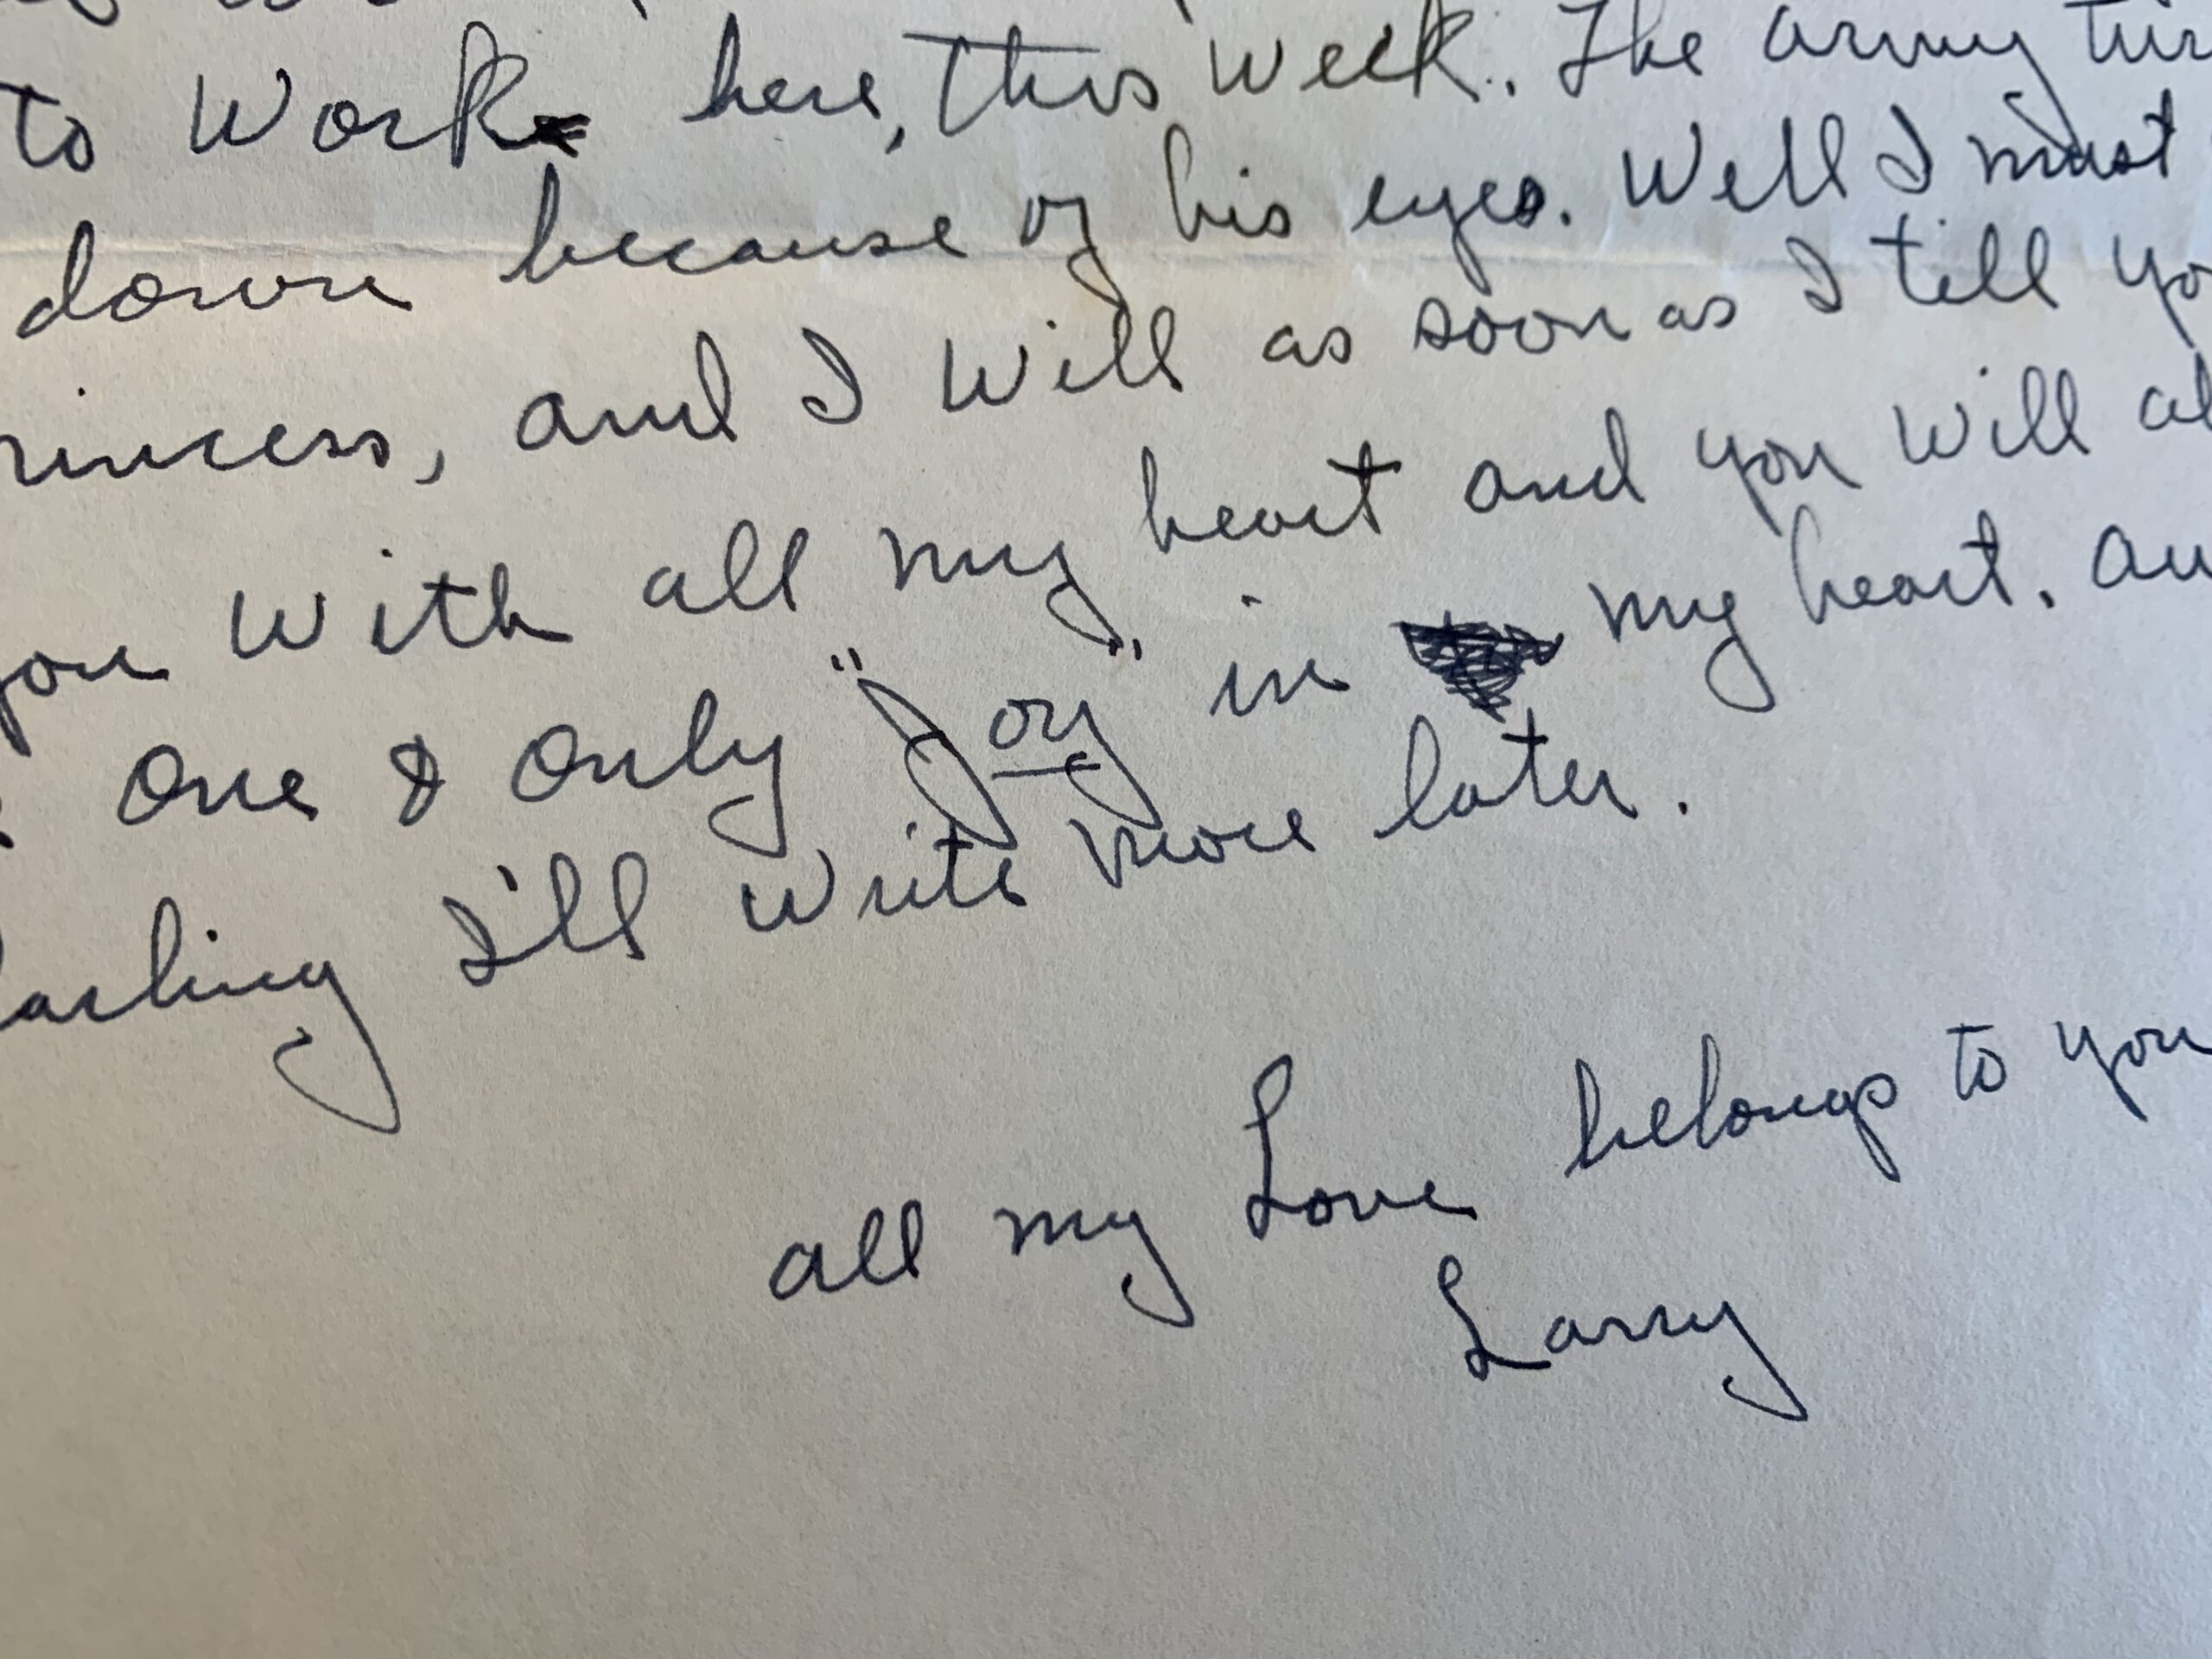 to Work here, this week. The army tur
down because of his eyes. Well I must
rincess, and I will as soon as I tell yo
you with all my heart and you will al
one & only "Joy" in my heart. au
arling I'll write more later.
all my Love belongs to you
Larry